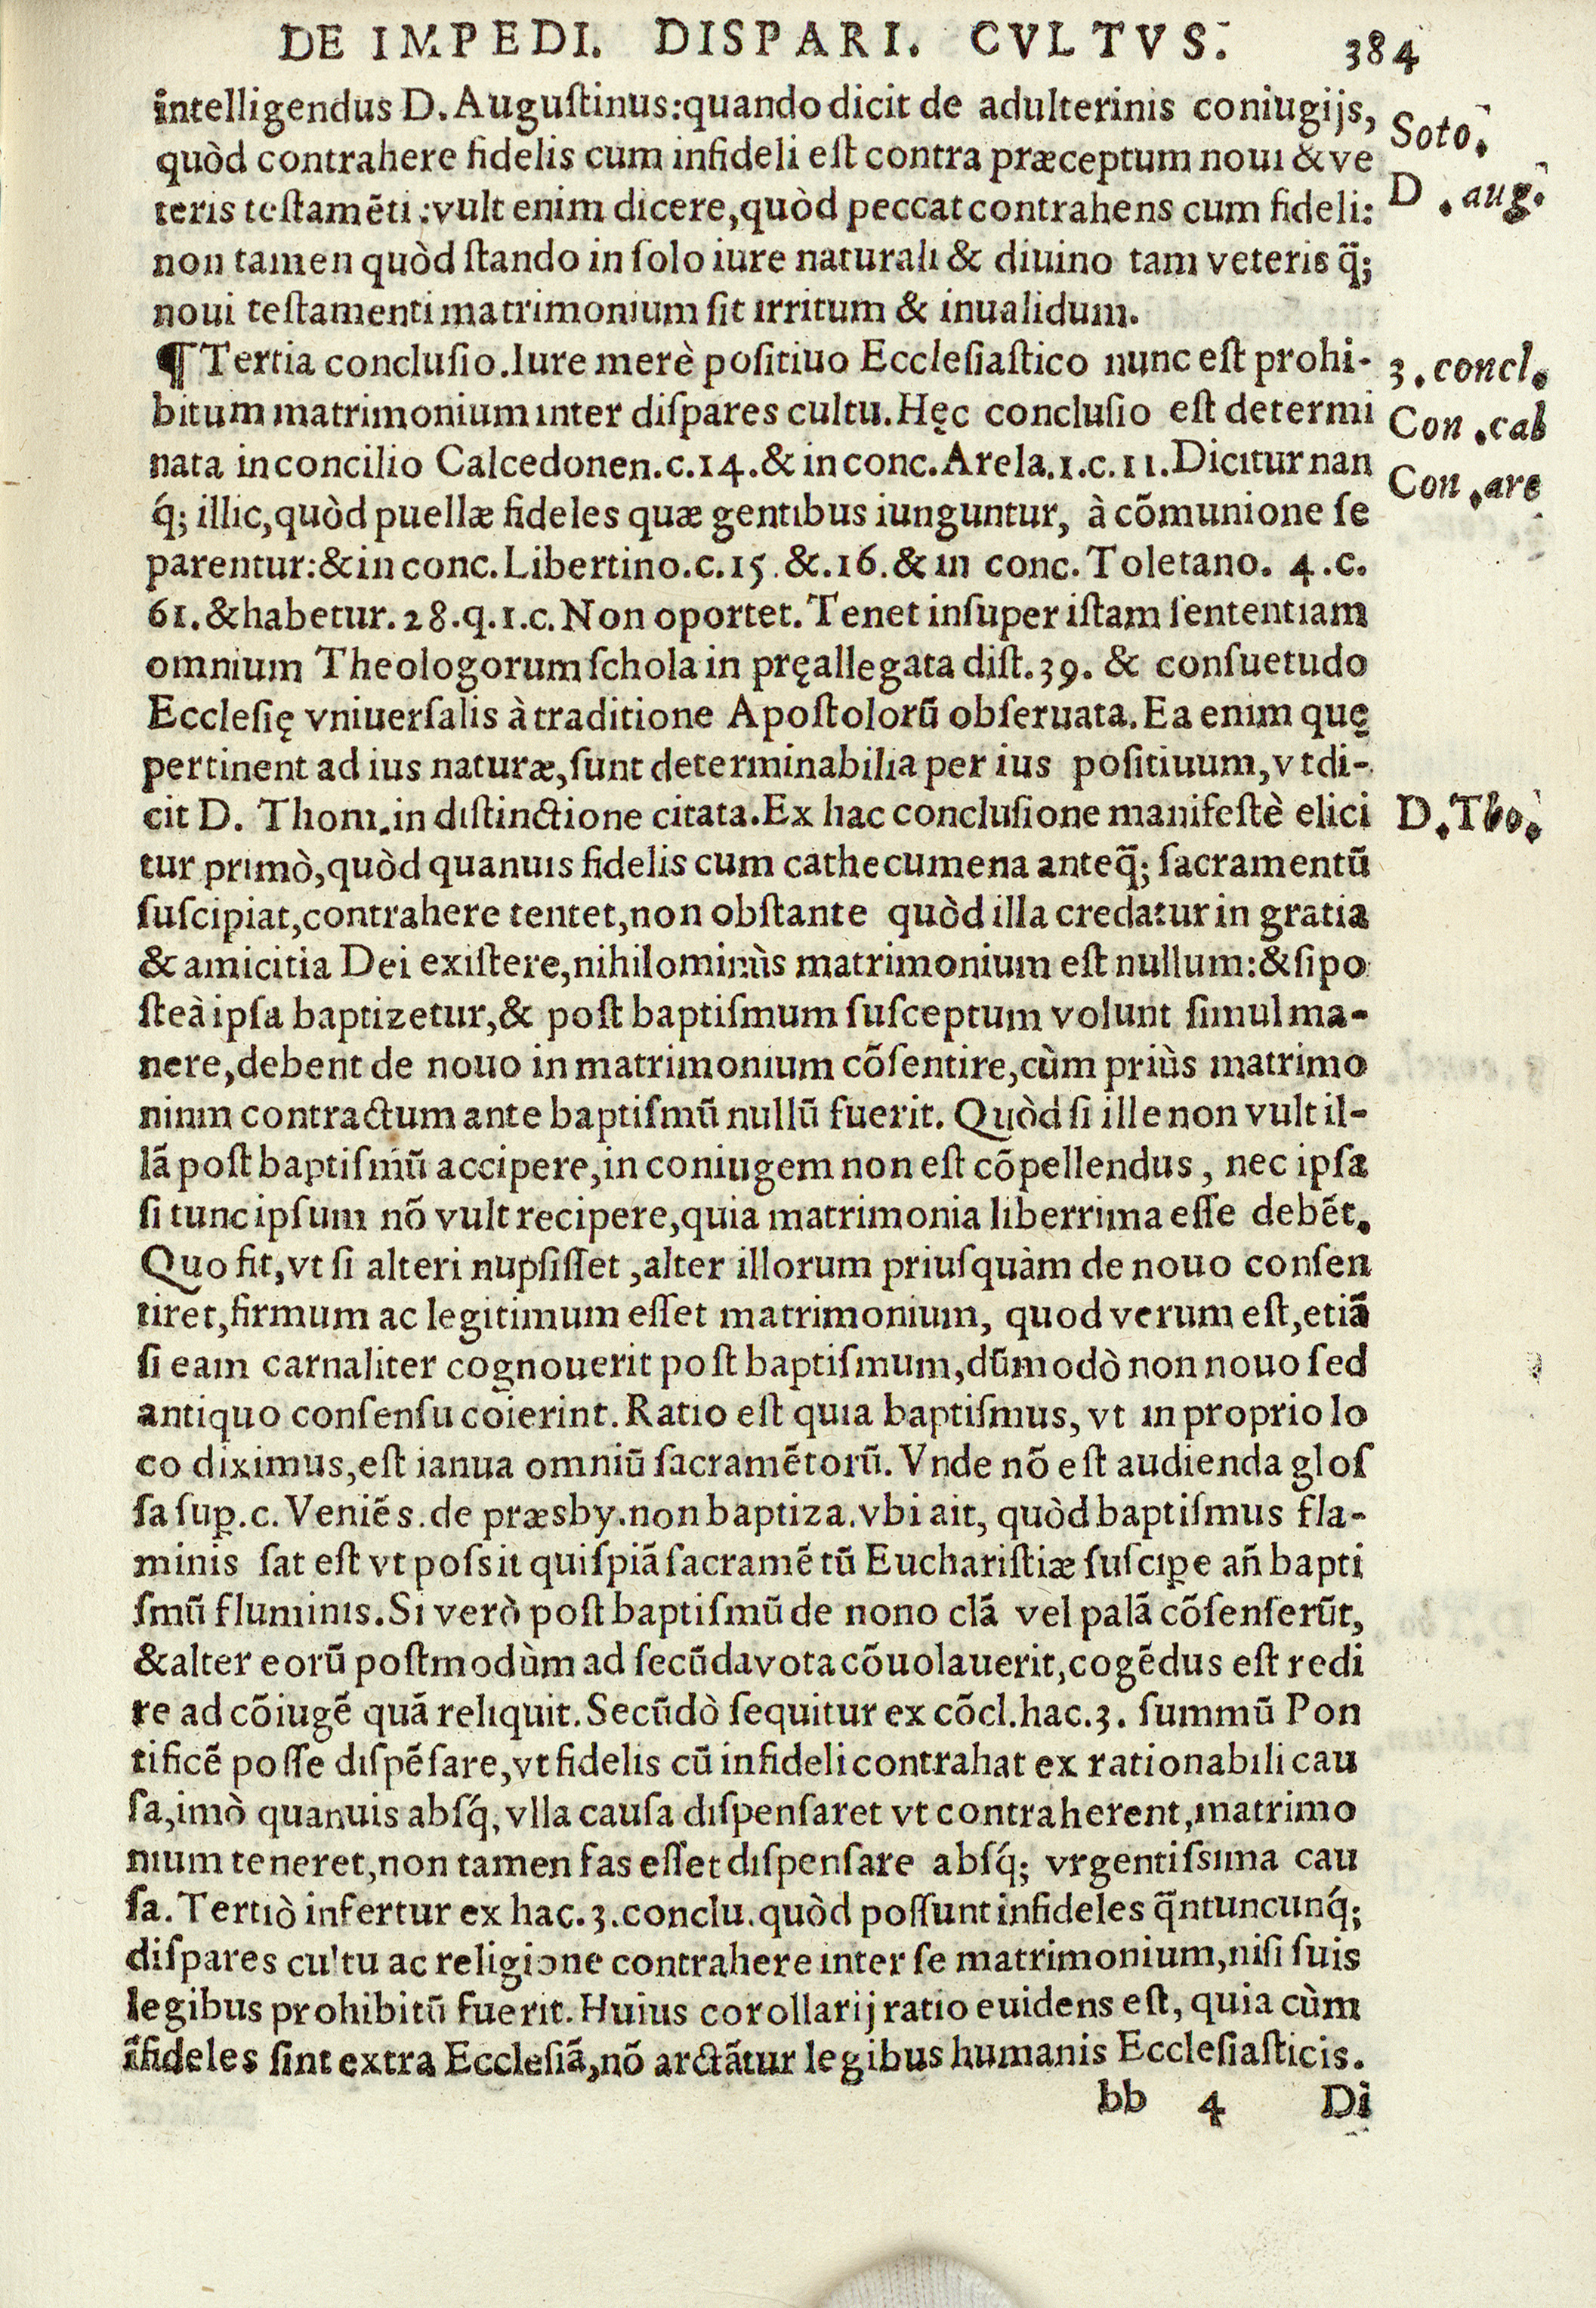 DE IMPEDI. DISPARI. CVLTVS. 384
intelligendus D. Auguſtinus:quando dicit de adulterinis coniugijs,
Soto.
quòd contrahere fidelis cum infideli eſt contra præceptum noui & ve
D. aug.
teris teſtamẽti: vult enim dicere, quòd peccat contrahens cum fideli:
non tamen quòd ſtando in ſolo iure naturali & diuino tam veteris q̃;
noui teſtamenti matrimonium ſit irritum & inualidum.
¶ Tertia concluſio. Iure merè poſitiuo Eccleſiaſtico nunc eſt prohi-
3. concl.
bitum matrimonium inter diſpares cultu. Hęc concluſio eſt determi
Con. cal
nata in concilio Calcedonen. c. 14. & in conc. Arela. 1. c. 11. Dicitur nan
Con. are
q́; illic, quòd puellæ fideles quæ gentibus iunguntur, à cõmunione ſe
parentur: & in conc. Libertino. c. 15. &. 16. & in conc. Toletano. 4. c.
61. & habetur. 28. q. 1. c. Non oportet. Tenet inſuper iſtam ſententiam
omnium Theologorum ſchola in pręallegata diſt. 39. & conſuetudo
Eccleſię vniuerſalis à traditione Apoſtolorũ obſeruata. Ea enim quę
pertinent ad ius naturæ, ſunt determinabilia per ius poſitiuum, vt di-
cit D. Thom. in diſtinctione citata. Ex hac concluſione manifeſtè elici
D. Tho.
tur primò, quòd quanuis fidelis cum cathecumena anteq̃; ſacramentũ
ſuſcipiat, contrahere tentet, non obſtante quòd illa credatur in gratia
& amicitia Dei exiſtere, nihilominùs matrimonium eſt nullum: & ſi po
ſteà ipſa baptizetur, & poſt baptiſmum ſuſceptum volunt ſimul ma-
nere, debent de nouo in matrimonium cõſentire, cùm priùs matrimo
nium contractum ante baptiſmũ nullũ fuerit. Quòd ſi ille non vult il-
lã poſt baptiſmũ accipere, in coniugem non eſt cõpellendus, nec ipſa
ſi tunc ipſum nõ vult recipere, quia matrimonia liberrima eſſe debẽt.
Quo fit, vt ſi alteri nupſiſſet, alter illorum priuſquàm de nouo conſen
tiret, firmum ac legitimum eſſet matrimonium, quod verum eſt, etiã
ſi eam carnaliter cognouerit poſt baptiſmum, dũmodò non nouo ſed
antiquo conſenſu coierint. Ratio eſt quia baptiſmus, vt in proprio lo
co diximus, eſt ianua omniũ ſacramẽtorũ. Vnde nõ eſt audienda gloſ
ſa ſup. c. Veniẽs. de præsby. non baptiza. vbi ait, quòd baptiſmus fla-
minis ſat eſt vt poſsit quiſpiã ſacramẽtũ Euchariſtiæ ſuſciꝑe añ bapti
ſmũ fluminis. Si verò poſt baptiſmũ de nono clã vel palã cõſenſerũt,
& alter eorũ poſtmodùm ad ſecũda vota cõuolauerit, cogẽdus eſt redi
re ad cõiugẽ quã reliquit. Secũdò ſequitur ex cõcl. hac. 3. ſummũ Pon
tificẽ poſſe diſpẽſare, vt fidelis cũ infideli contrahat ex rationabili cau
ſa, imò quanuis abſq́, vlla cauſa diſpenſaret vt contraherent, matrimo
nium teneret, non tamen fas eſſet diſpenſare abſq́; vrgentiſsima cau
ſa. Tertiò infertur ex hac. 3. conclu. quòd poſſunt infideles q̃ntuncunq́;
diſpares cultu ac religione contrahere inter ſe matrimonium, niſi ſuis
legibus prohibitũ fuerit. Huius corollarij ratio euidens eſt, quia cùm
ĩfideles ſint extra Eccleſiã, nõ arctãtur legibus humanis Eccleſiaſticis.
bb 4 Di